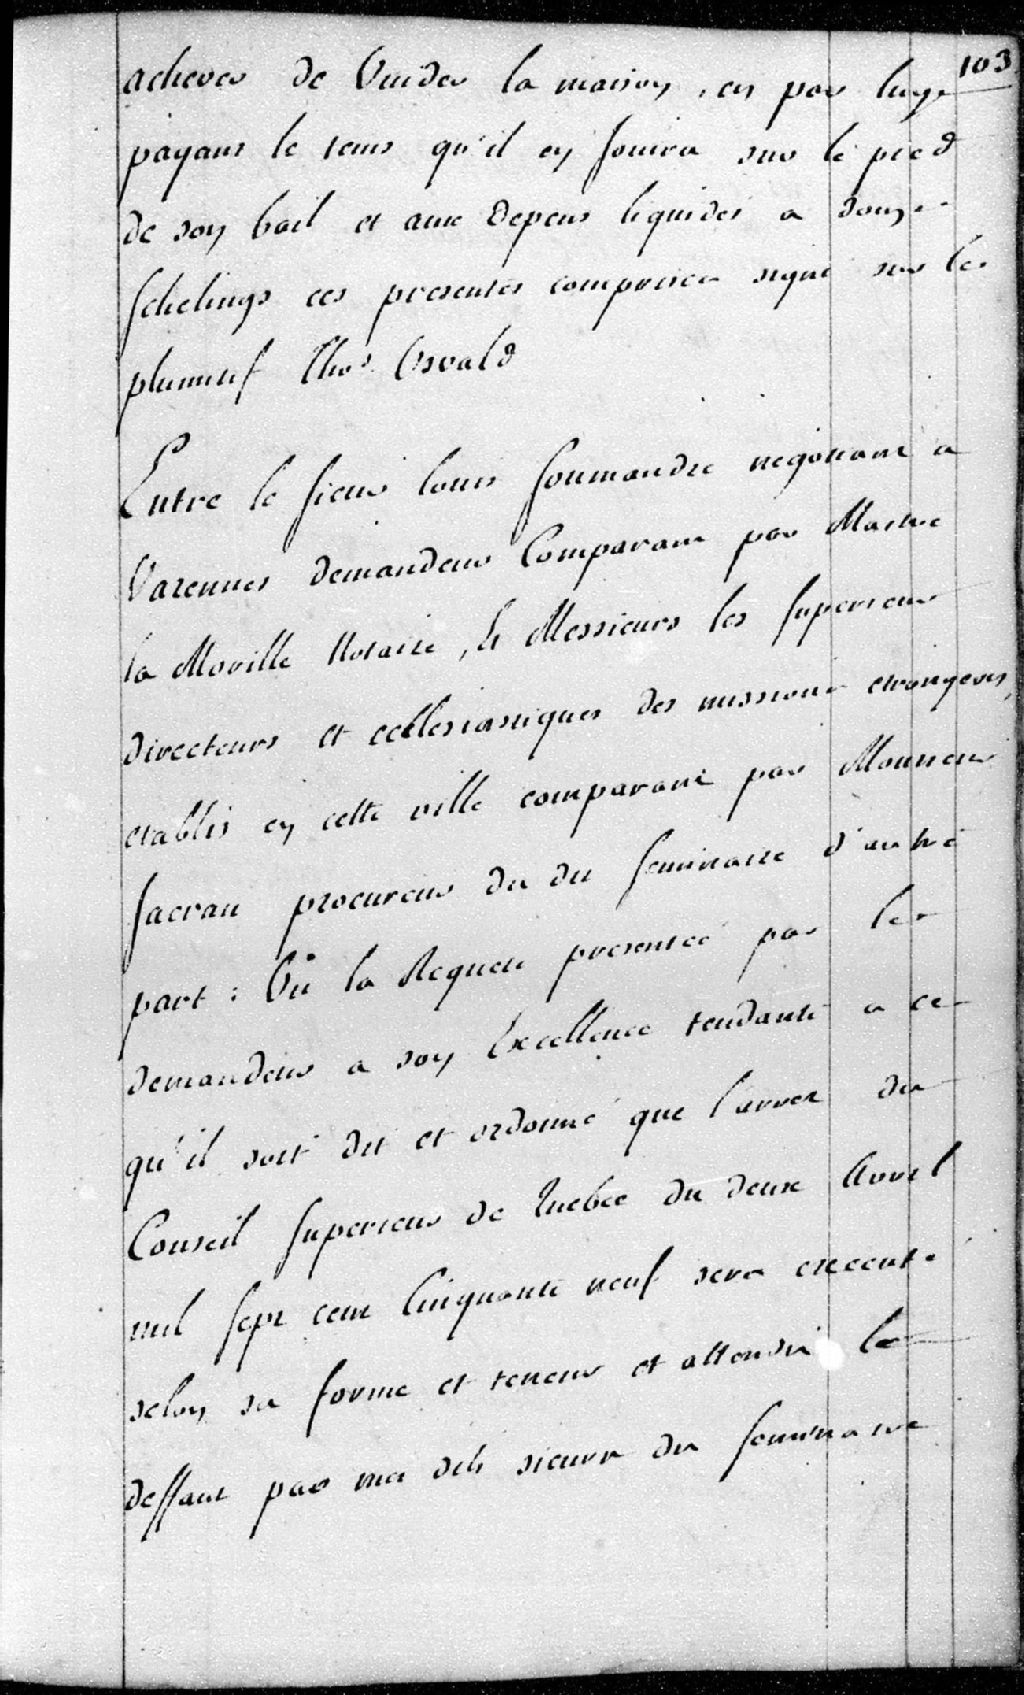 103
achever de Vuider la maison, en par luy
payant le tems qu'il en Jouira sur le pied
de son bail et aux depens liquidés a douze
schelings ces presentes comprises signé sur le
plumitif Thos. Osvald
Entre le sieur louis soumandre negotiant a
Varennes demandeur Comparant par Maitre
la Moville Notaire, Et Messieurs les superieur
directeurs et ecclesiastiques des missions etrangeres,
etablis en cette ville comparant par Monsieur
Jacrau procureur du dit seminaire d'autre
part : Vû la Requete presentée par le
demandeur a son Excellence tendante a ce
qu'il soit dit et ordonné que l'arret du
Conseil superieur de Quebec du deux Avril
mil sept cent Cinquante neuf sera executé
selon sa forme et teneur et attendu le
deffaut par mes dits sieurs du seminaire